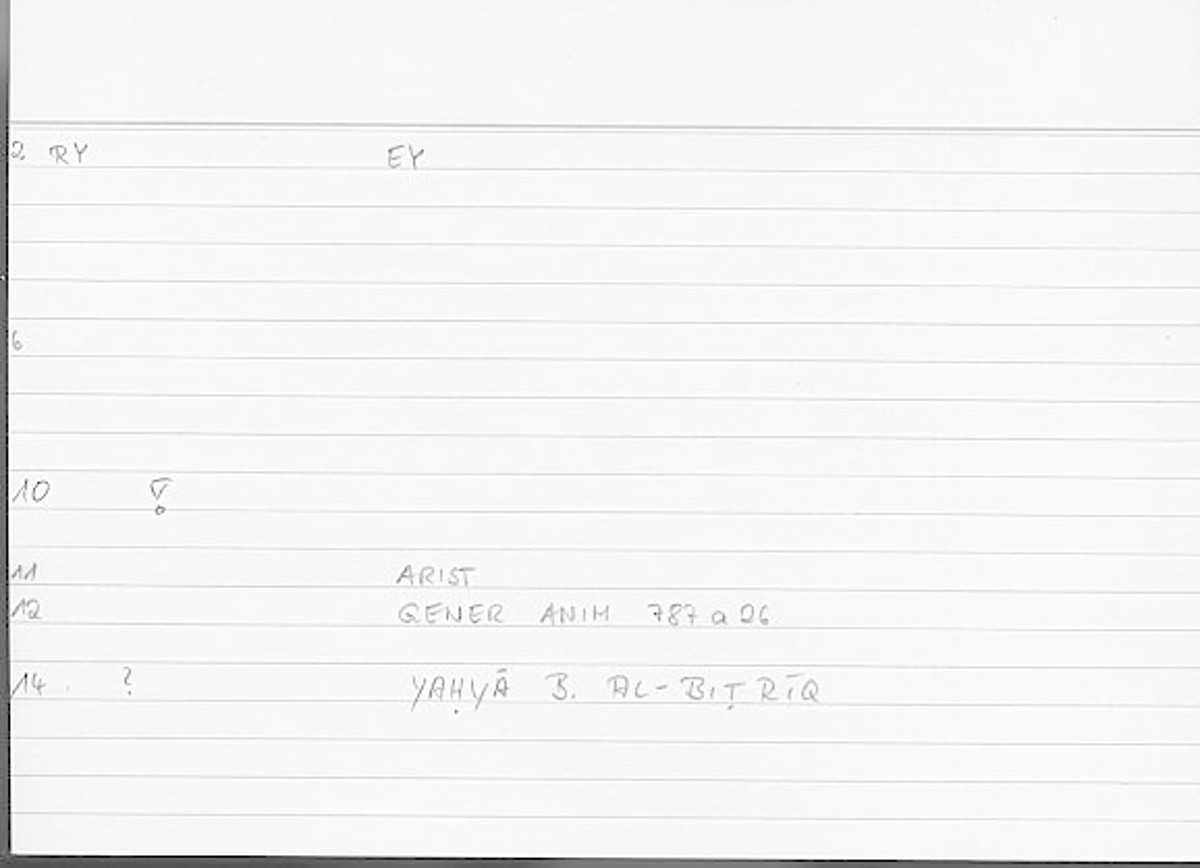 2 RY EY
6
10
11 ARIST
12 GENER ANIM 787 a 26
14 ? YAḤYĀ B. AL-BIṬRĪQ